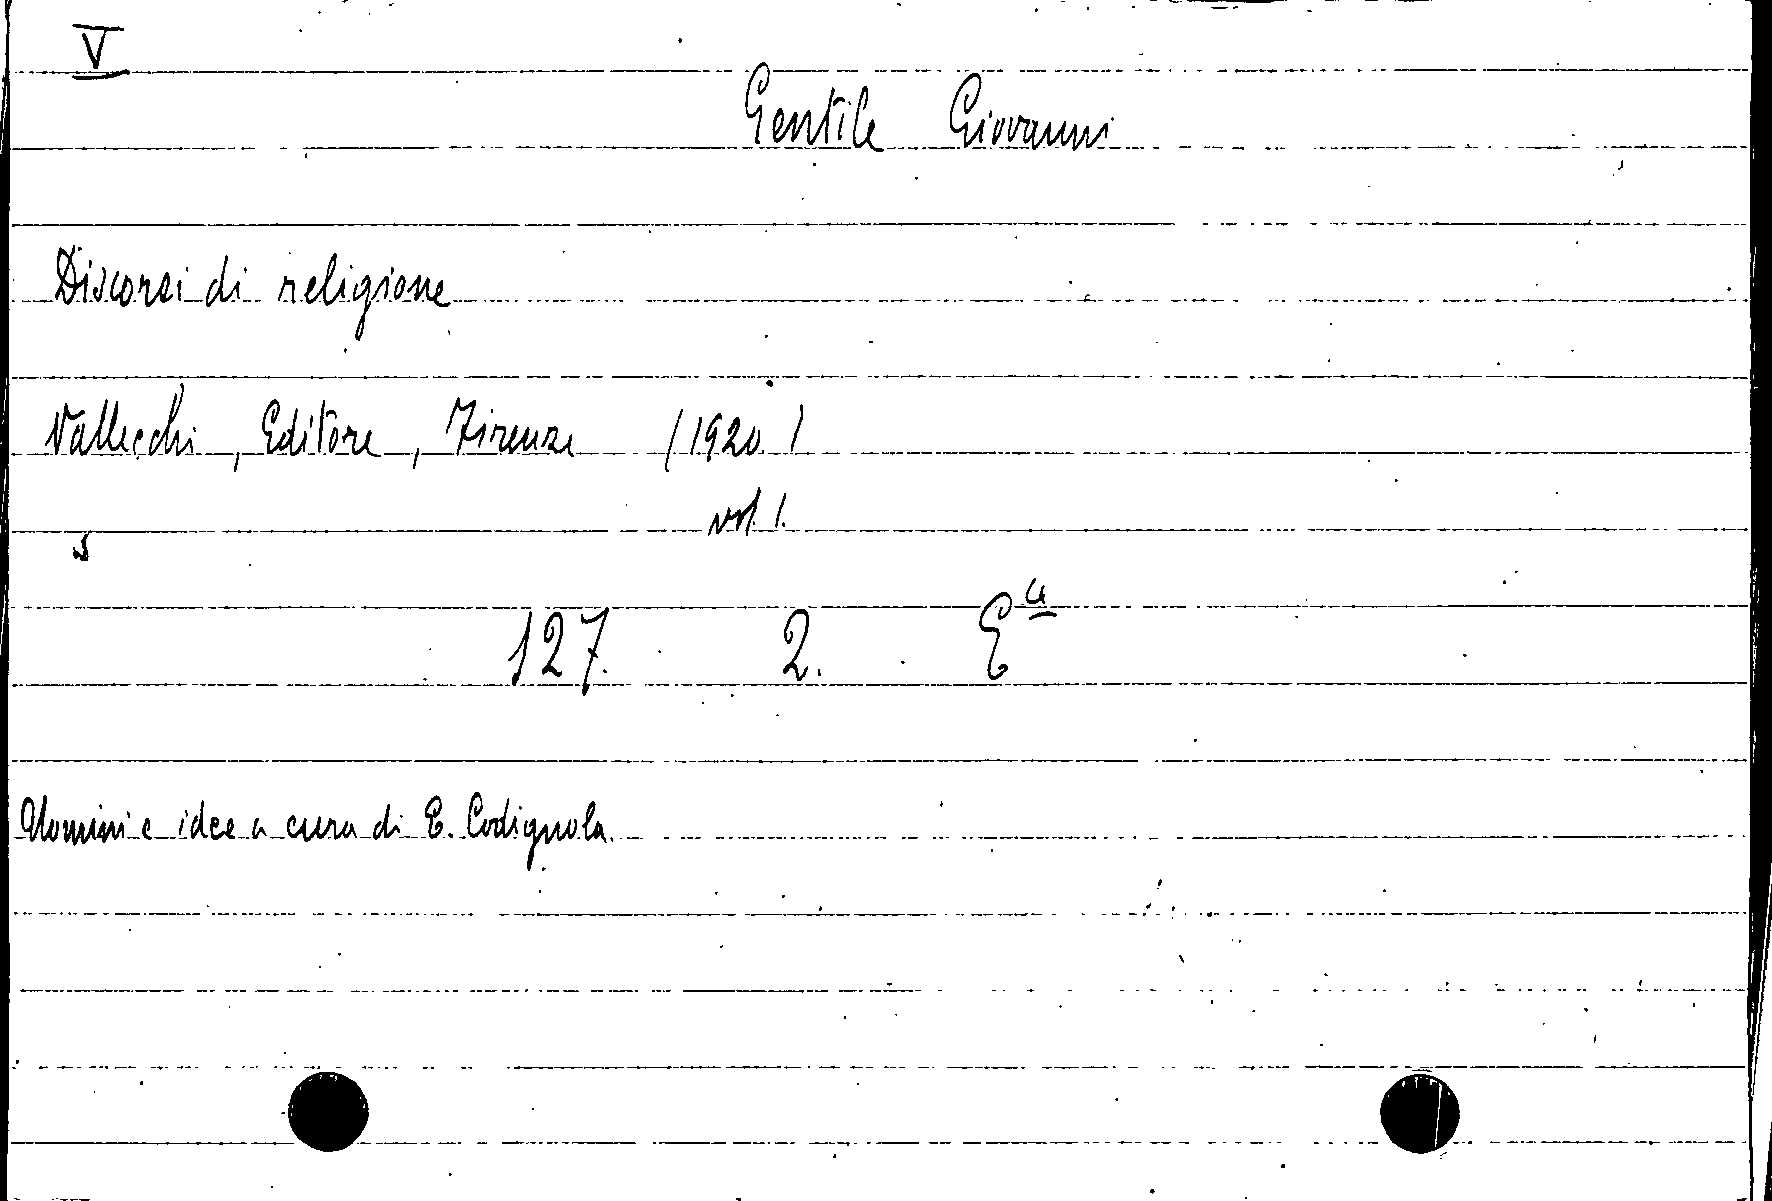 V
Gentile Giovanni
Discorsi di religione
Vallecchi, Editore, Firenze (1920)
vol. 1.
127. 2. E
Uomini e idee a cura di E. Codignola.